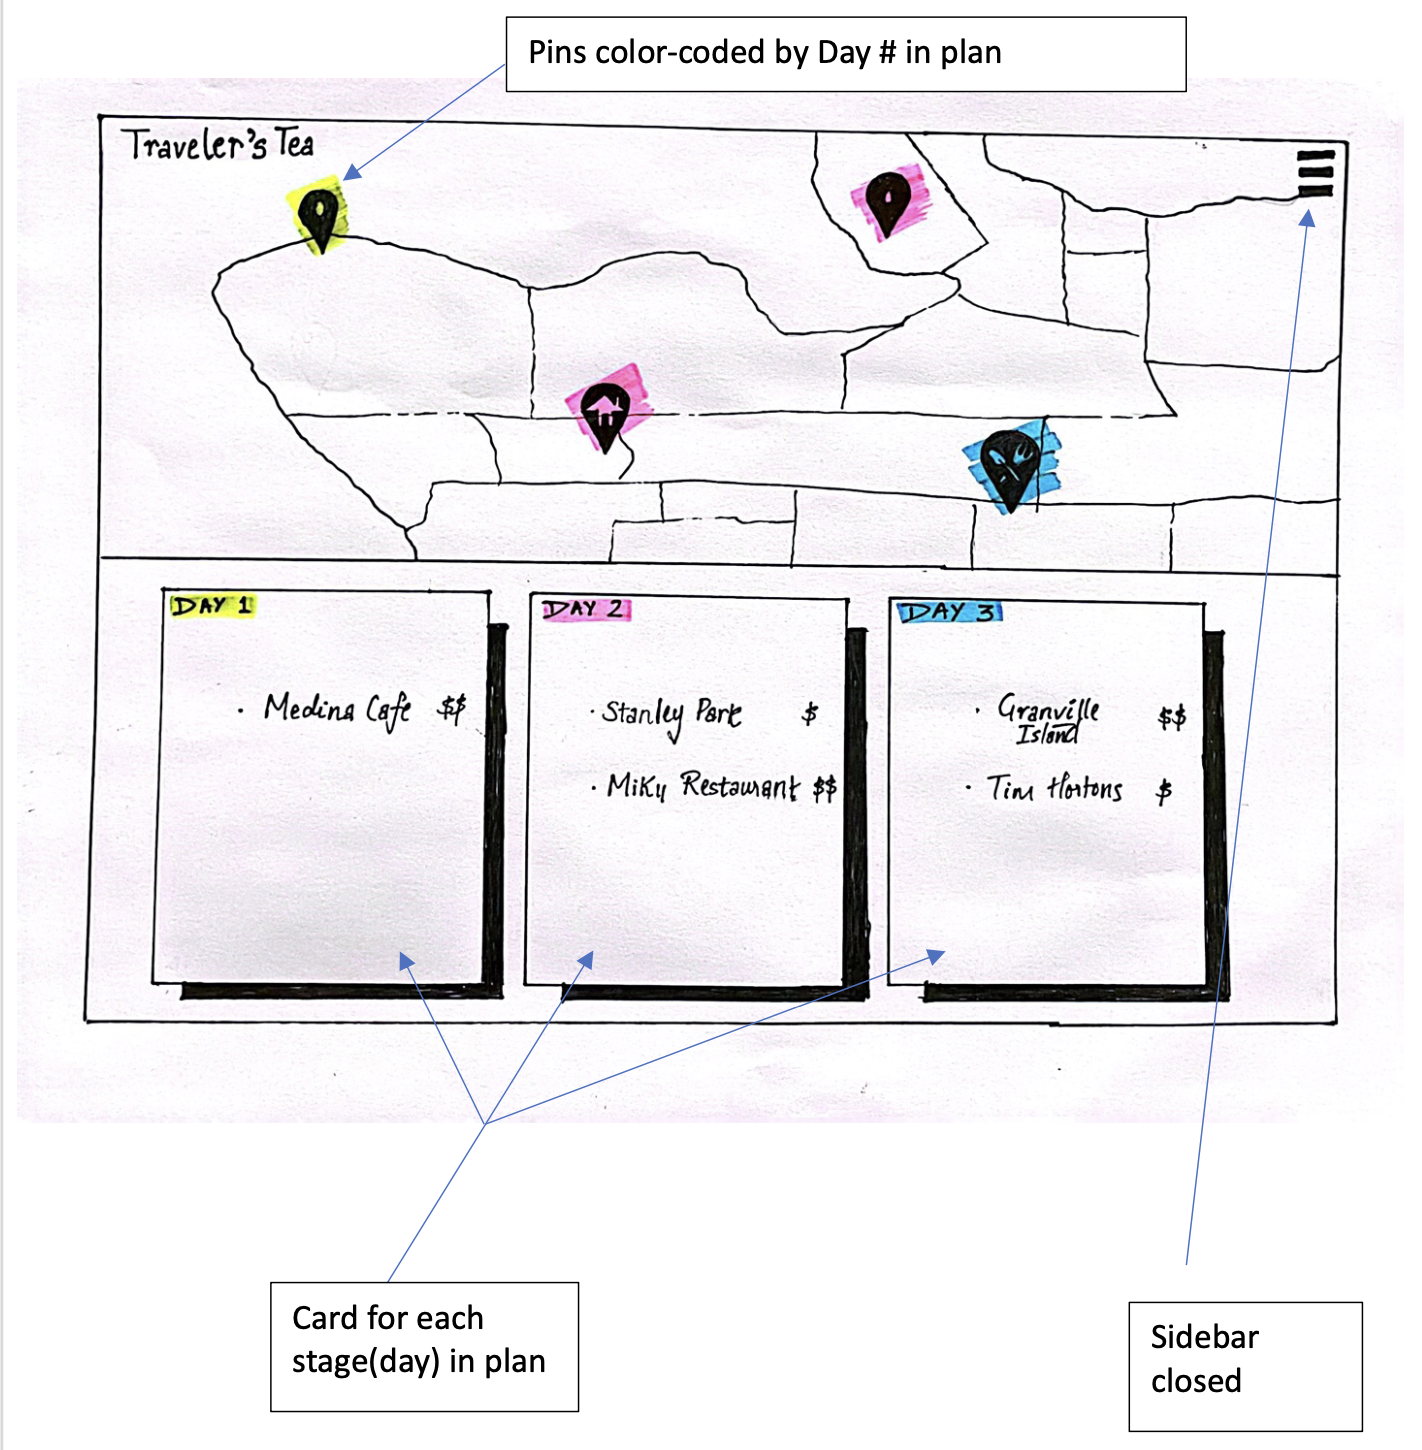 Pins color-coded by Day # in plan
Traveler's Tea
DAY 1
· Medina Cafe $$
DAY 2
· Stanley Park $
· Miky Restaurant $$
DAY 3
· Granville Island $$
· Tim Hortons $
Card for each
stage(day) in plan
Sidebar
closed